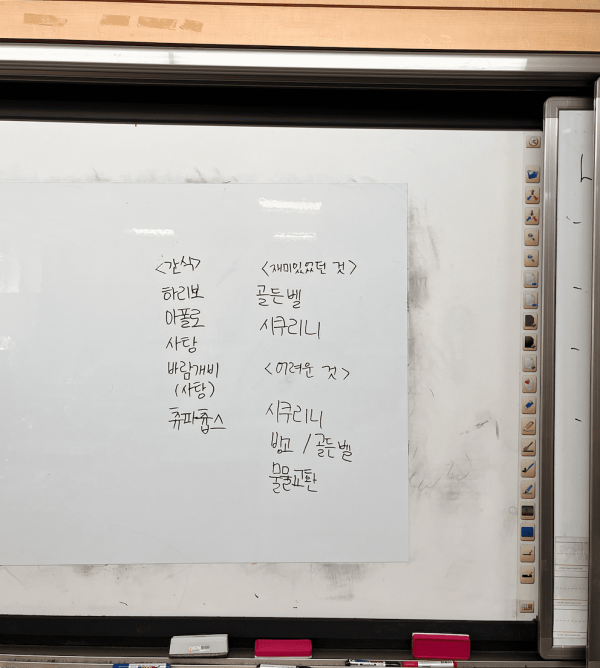 <간식>
하리보
아폴로
사탕
바람개비
(사탕)
츄파춥스
<재미있었던 것>
골든벨
시쿠리니
<어려운 것>
시쿠리니
빙고 / 골든벨
물물교환